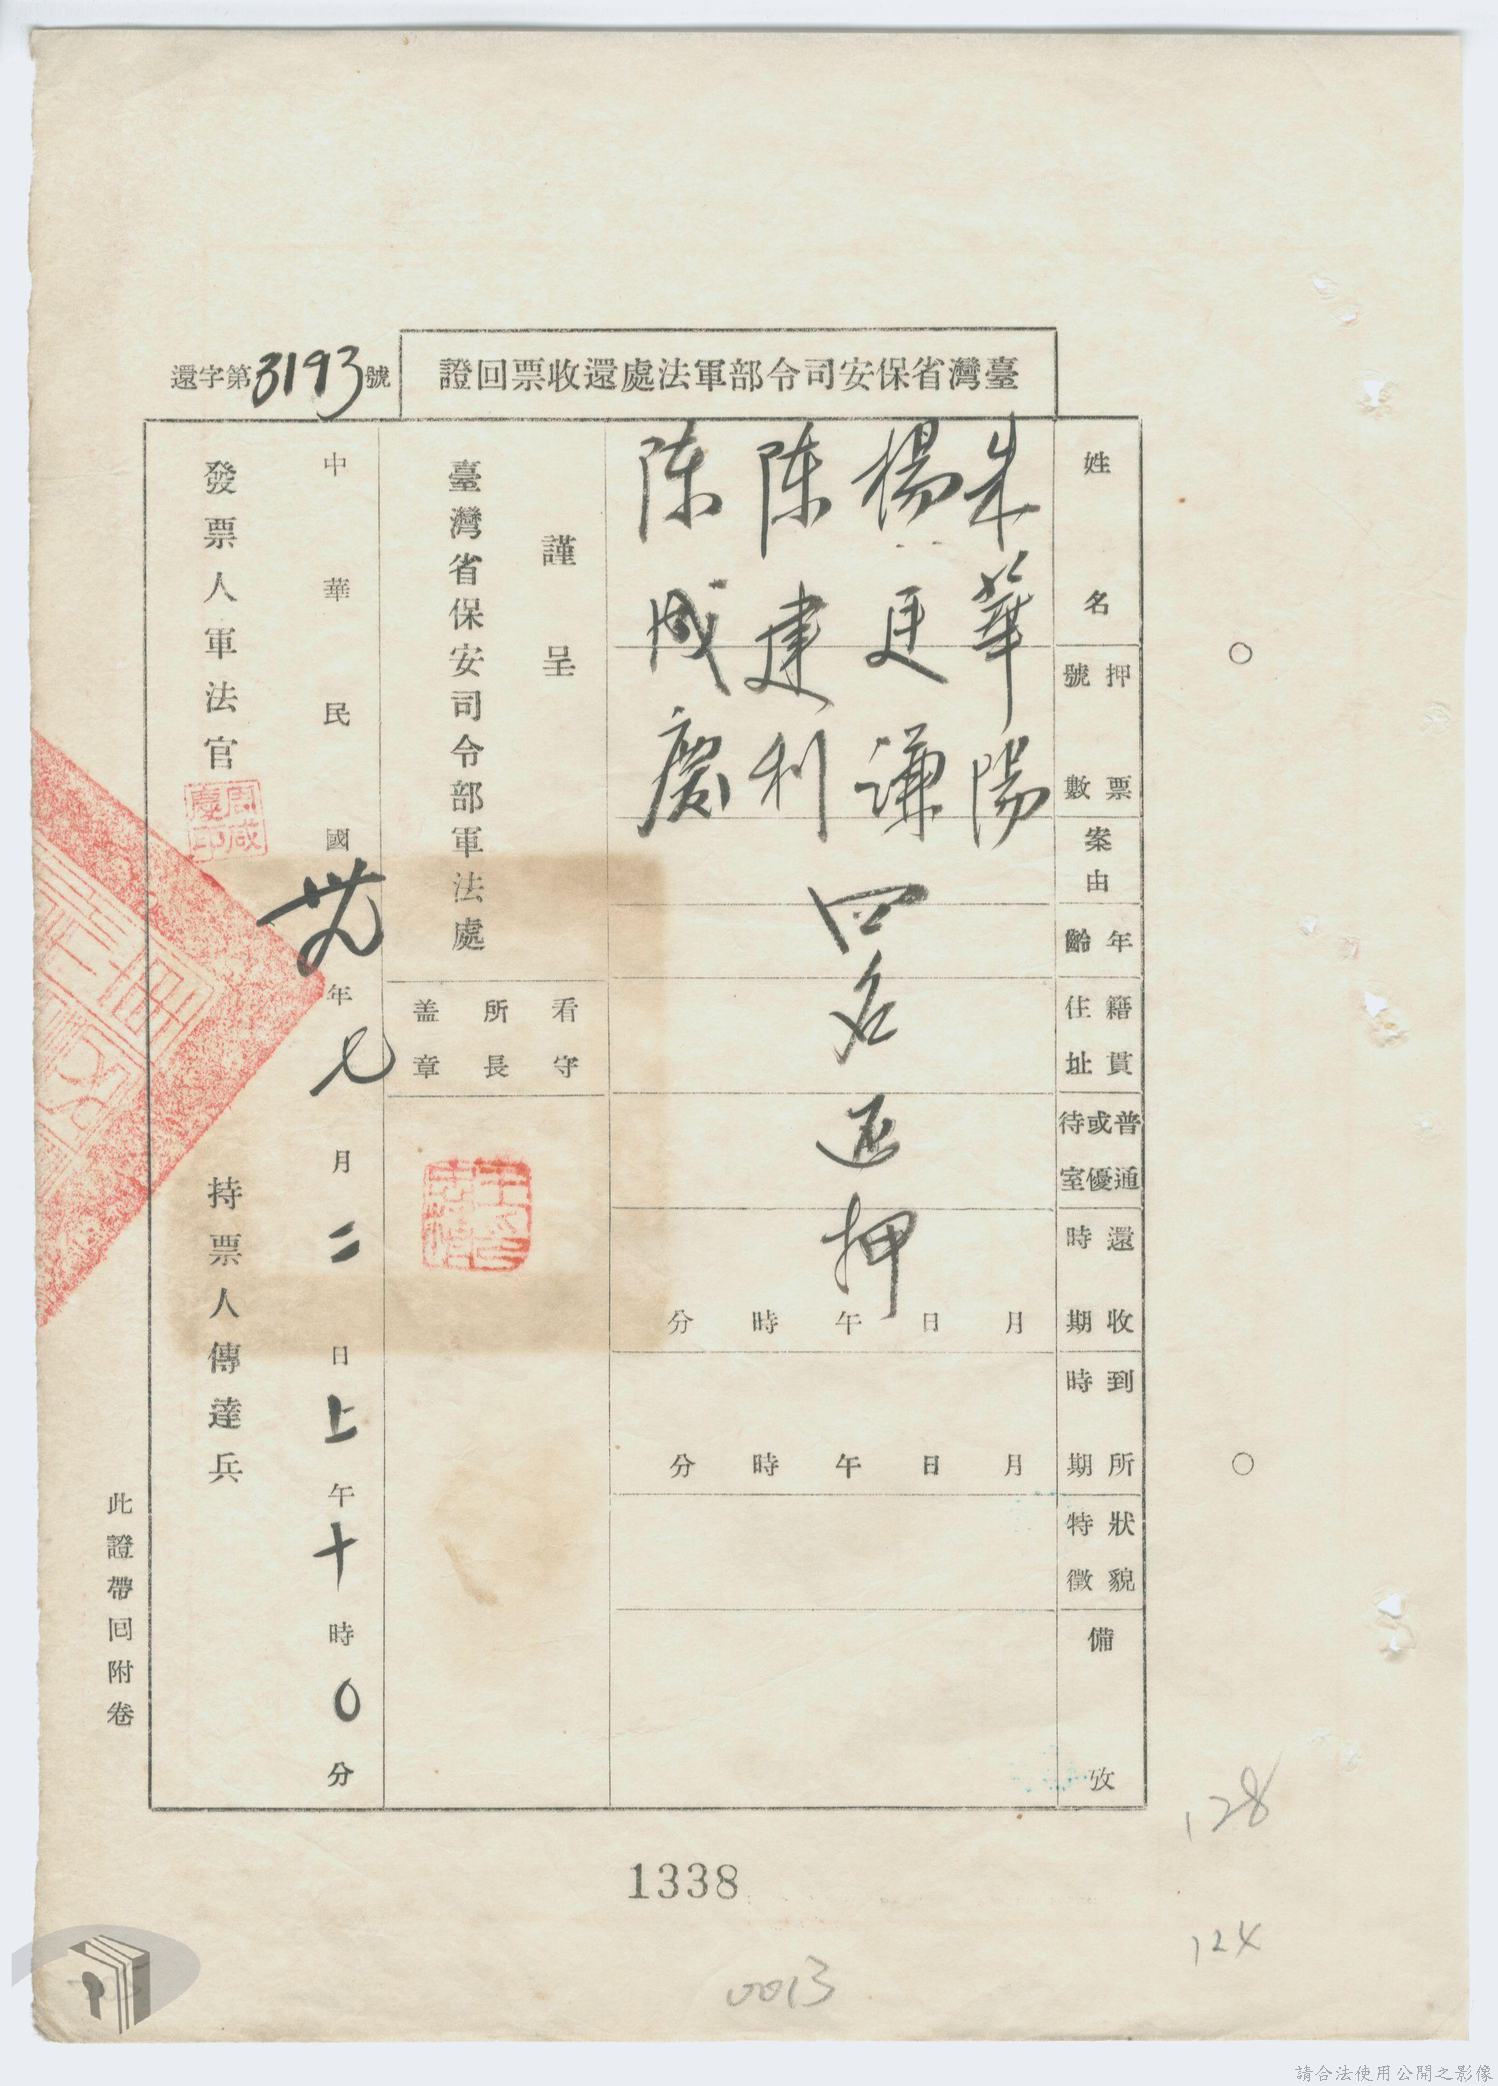 臺灣省保安司令部軍法處還收票回證
還字第3193號
姓名
押票號數
案由
年齡
籍貫住址
普通或優待室
還收時期
到所時期
狀貌特徵
備攷
朱華陽
楊廷謙
陳建利
陳成慶
四名还押
月日午時分
月日午時分
謹呈
臺灣省保安司令部軍法處
看守所長盖章
中華民國卅九年七月二日上午十時0分
發票人軍法官
周咸慶印
持票人傳達兵
此證帶回附卷
128
1338
124
0013
請合法使用公開之影像